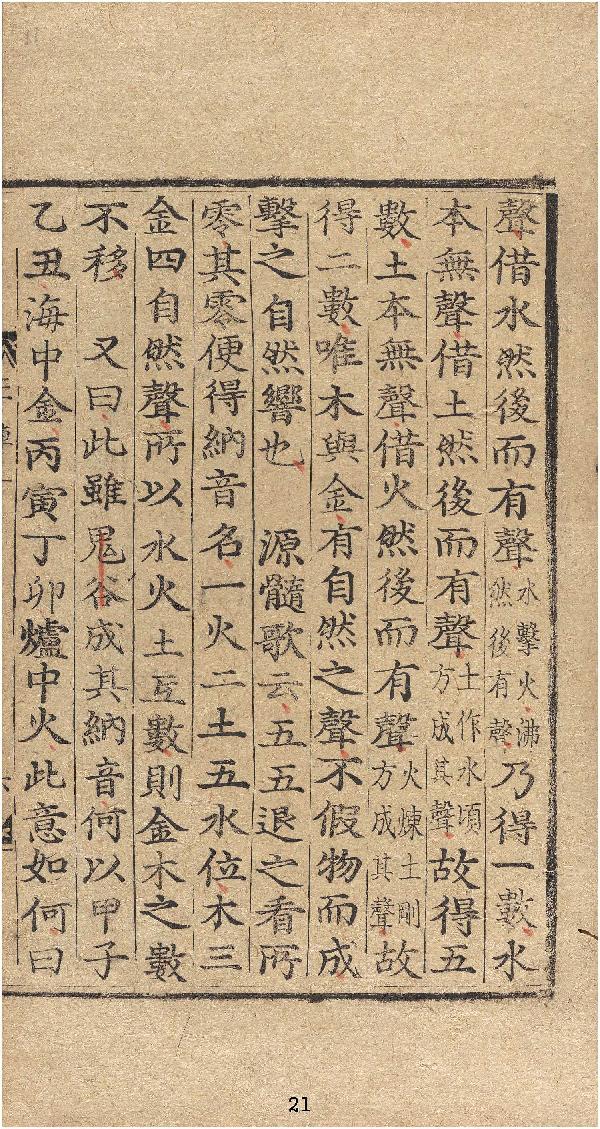 聲借水然後而有聲水擊火沸然後有聲乃得一數水
本無聲借土然後而有聲土作水頃方成其聲故得五
數土本無聲借火然後而有聲火煉土剛方成其聲故
得二數唯木與金有自然之聲不假物而成
擊之自然響也　源髓歌云五五退之看所
零其零便得納音名一火二土五水位木三
金四自然聲所以水火土互數則金木之數
不移　又曰此雖鬼谷成其納音何以甲子
乙丑海中金丙寅丁卯爐中火此意如何曰
21